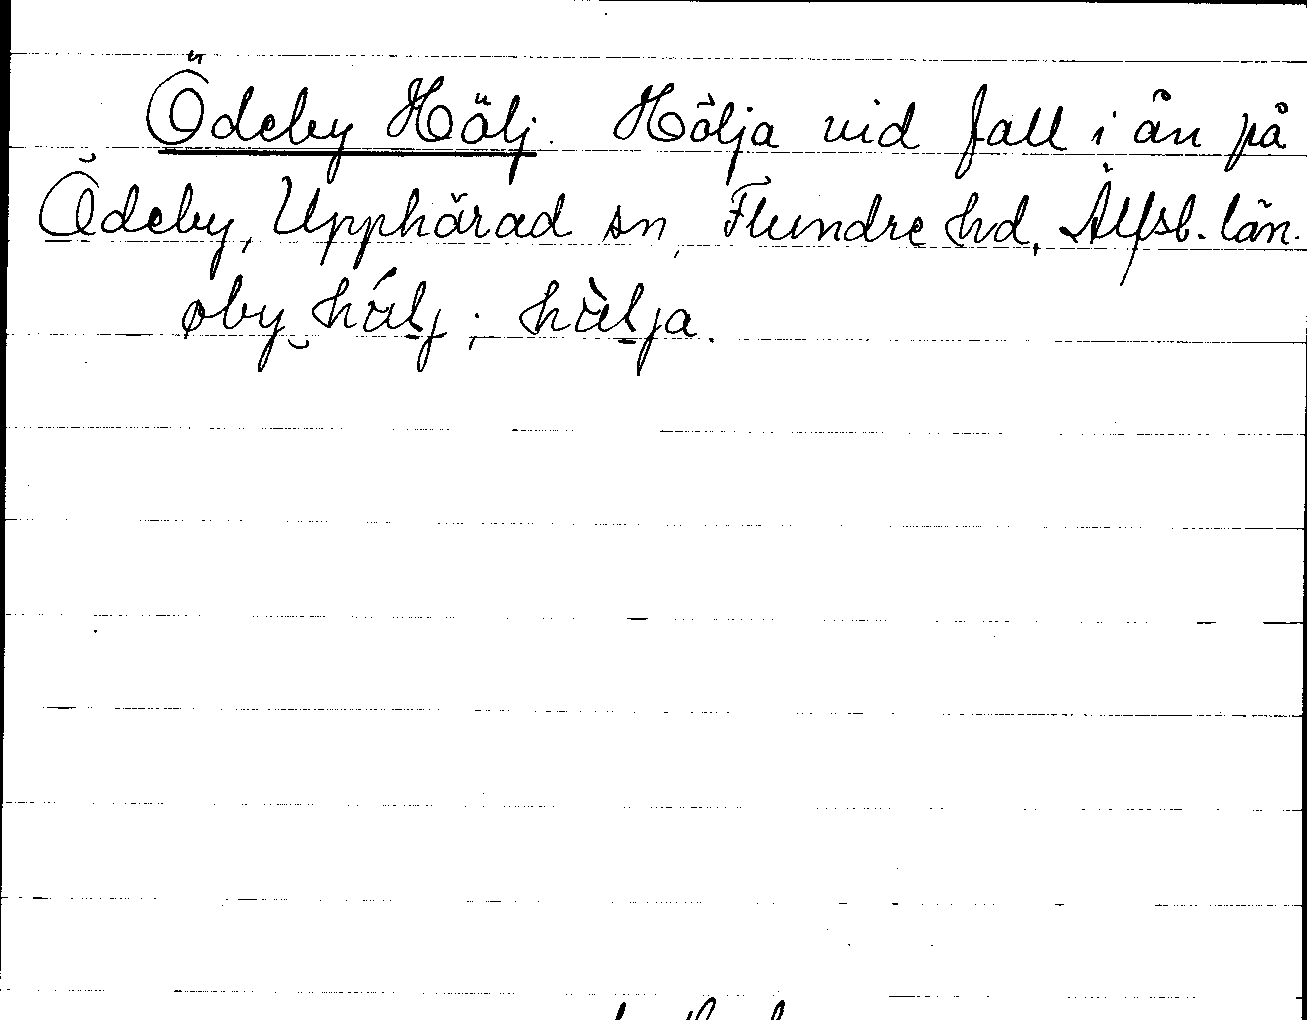 Ödeby Hölj. Hölja vid fall i ån på
Ödeby, Upphärad sn, Flundre hd, Älfsb. län.
øby hálj; hàlja.